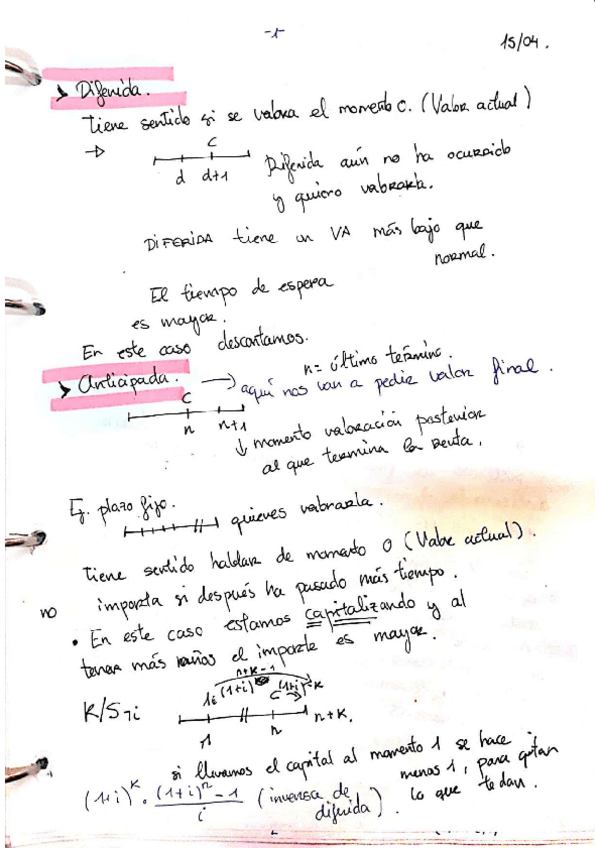 -1-
15/04.
> Diferida.
Tiene sentido si se valora el momento c. (Valor actual)
→
c
d d+1
Diferida aún no ha ocurrido
y quiero valorarla.
DIFERIDA tiene un VA más bajo que
normal.
El tiempo de espera
es mayor.
En este caso descontamos.
n = último término.
> Anticipada. → aquí nos van a pedir valor final.
c
n n+1
↓ momento valoración posterior
al que termina la renta.
Ej. plazo fijo.
quieres valorarla.
Tiene sentido hablar de momento 0 (Valor actual).
no importa si después ha pasado más tiempo.
• En este caso estamos capitalizando y al
tener más años el importe es mayor.
n+k-1
(1+i) c (1+i)^k
K/S¬i
1 n n+k.
si llevamos el capital al momento 1 se hace
menos 1, para quitar
lo que te dan.
(1+i)^k · (1+i)^n - 1 / i (inversa de
diferida).